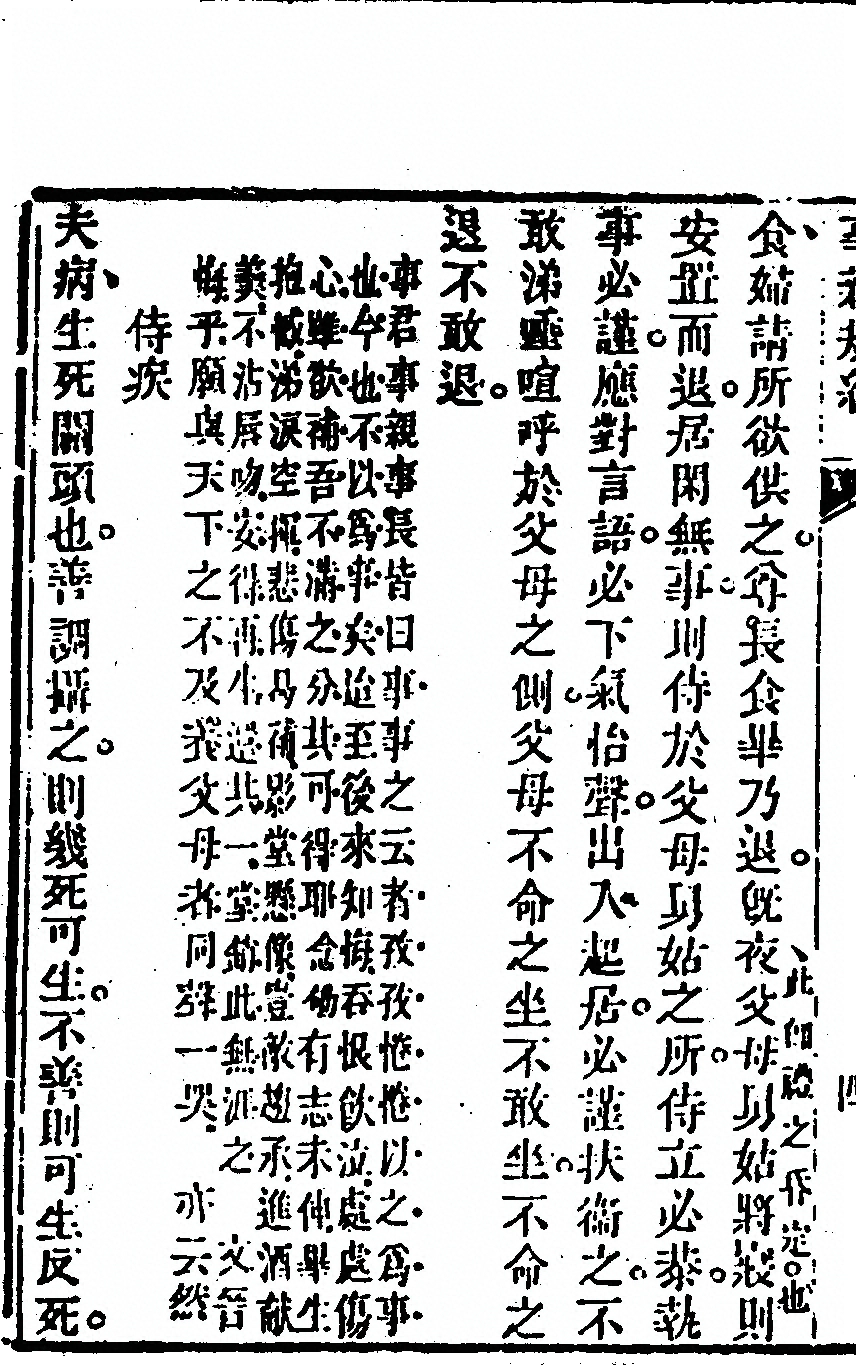 食婦請所欲供之尊長食畢乃退既夜父母舅姑將寢則
此即禮之昏定也
安置而退居閑無事則侍於父母舅姑之所侍立必恭執
事必謹應對言語必下氣怡聲出入起居必謹扶衛之不
敢涕唾喧呼於父母之側父母不命之坐不敢坐不命之
退不敢退
事君事親事長皆曰事事之云者孜孜惓惓以之爲事
也今也不以爲事矣迨至後來知悔吞恨飲泣處處傷
心雖欲補吾不满之分其可得耶念劬有志未伸畢生
抱憾涕淚空揮悲傷曷補影堂懸像豈敵趨承進酒献
羹不沾唇吻安得再生還共一堂銷此無涯之
文晉
悔乎願與天下之不及養父母者同聲一哭
亦云然
侍疾
夫病生死關頭也善調攝之則幾死可生不善則可生反死